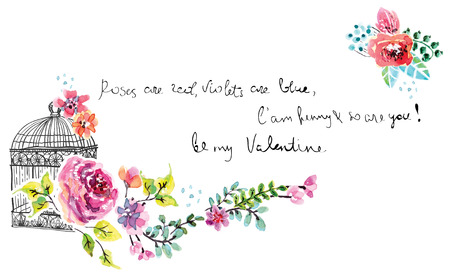 Roses are red, violets are blue,
I'am funny & so are you!
be my Valentine.